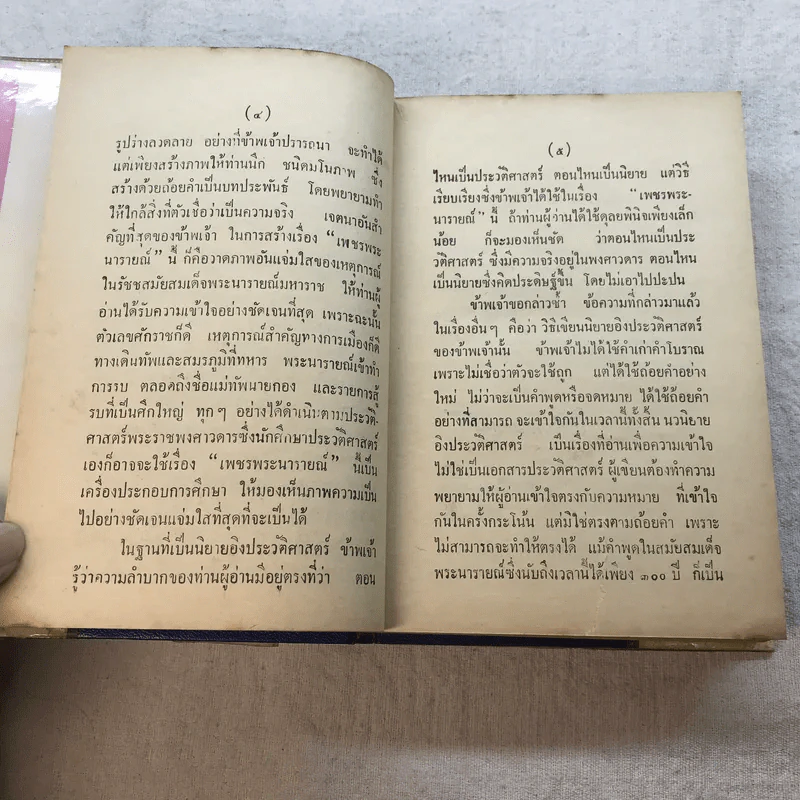 (๔)
รูปร่างลวดลาย อย่างที่ข้าพเจ้าปรารถนา จะทำได้
แต่เพียงสร้างภาพให้ท่านนึก ชนิดมโนภาพ ซึ่ง
สร้างด้วยถ้อยคำเป็นบทประพันธ์ โดยพยายามทำ
ให้ใกล้สิ่งที่ตัวเชื่อว่าเป็นความจริง เจตนาอันสำ
คัญที่สุดของข้าพเจ้า ในการสร้างเรื่อง “เพชรพระ
นารายณ์” นี้ ก็คือวาดภาพอันแจ่มใสของเหตุการณ์
ในรัชชสมัยสมเด็จพระนารายณ์มหาราช ให้ท่านผู้
อ่านได้รับความเข้าใจอย่างชัดเจนที่สุด เพราะฉะนั้น
ตัวเลขศักราชก็ดี เหตุการณ์สำคัญทางการเมืองก็ดี
ทางเดินทัพและสมรภูมิที่ทหาร พระนารายณ์เข้าทำ
การรบ ตลอดถึงชื่อแม่ทัพนายกอง และรายการสู้
รบที่เป็นศึกใหญ่ ทุกๆ อย่างได้ดำเนินตามประวัติ-
ศาสตร์พระราชพงศาวดารซึ่งนักศึกษาประวัติศาสตร์
เองก็อาจจะใช้เรื่อง “เพชรพระนารายณ์” นี้เป็น
เครื่องประกอบการศึกษา ให้มองเห็นภาพความเป็น
ไปอย่างชัดเจนแจ่มใสที่สุดที่จะเป็นได้
ในฐานที่เป็นนิยายอิงประวัติศาสตร์ ข้าพเจ้า
รู้ว่าความลำบากของท่านผู้อ่านมีอยู่ตรงที่ว่า ตอน
(๕)
ไหนเป็นประวัติศาสตร์ ตอนไหนเป็นนิยาย แต่วิธี
เรียบเรียงซึ่งข้าพเจ้าได้ใช้ในเรื่อง “เพชรพระ-
นารายณ์” นี้ ถ้าท่านผู้อ่านได้ใช้ดุลยพินิจเพียงเล็ก
น้อย ก็จะมองเห็นชัด ว่าตอนไหนเป็นประ
วัติศาสตร์ ซึ่งมีความจริงอยู่ในพงศาวดาร ตอนไหน
เป็นนิยายซึ่งคิดประดิษฐ์ขึ้น โดยไม่เอาไปปะปน
ข้าพเจ้าขอกล่าวซ้ำ ข้อความที่กล่าวมาแล้ว
ในเรื่องอื่นๆ คือว่า วิธีเขียนนิยายอิงประวัติศาสตร์
ของข้าพเจ้านั้น ข้าพเจ้าไม่ได้ใช้คำเก่าคำโบราณ
เพราะไม่เชื่อว่าตัวจะใช้ถูก แต่ได้ใช้ถ้อยคำอย่าง
ใหม่ ไม่ว่าจะเป็นคำพูดหรือจดหมาย ได้ใช้ถ้อยคำ
อย่างที่สามารถ จะเข้าใจกันในเวลานี้ทั้งสิ้น นวนิยาย
อิงประวัติศาสตร์ เป็นเรื่องที่อ่านเพื่อความเข้าใจ
ไม่ใช่เป็นเอกสารประวัติศาสตร์ ผู้เขียนต้องทำความ
พยายามให้ผู้อ่านเข้าใจตรงกับความหมาย ที่เข้าใจ
กันในครั้งกระโน้น แต่มิใช่ตรงตามถ้อยคำ เพราะ
ไม่สามารถจะทำให้ตรงได้ แม้คำพูดในสมัยสมเด็จ
พระนารายณ์ซึ่งนับถึงเวลานี้ได้เพียง ๓๐๐ ปี ก็เป็น